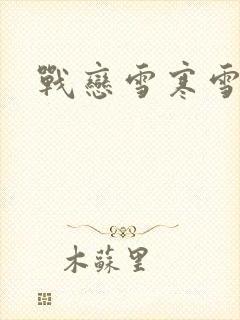 戰戀雪寒雪
木蘇里